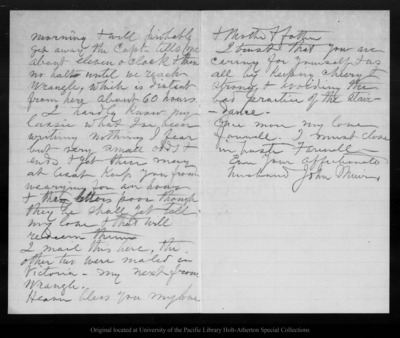 morning & will probably
get away the Capt. tells me
about eleven o clock & then
no halts until we reach
Wrangle, which is distant
from here about 60 hours.
I hardly know my
lassie what I've been
writing nothing I fear
but very small odds &
ends & yet these may
at least keep you from
wearying for an hour
& these letters poor though
they be shall yet tell
my love & that will
redeem them
I mail this here, the
other two were mailed in
Victoria - my next from
Wrangle.
Heaven bless you my love
& Mother & father
I trust that you are
caring for yourself & us
all by keeping cheery &
strong & avoiding the
bad practice of the stair
-dance.
Give mom my love
farewell. I must close
in haste Farewell
Ever your affectionate
husband John Muir
Original located at University of the Pacific Library Holt-Atherton Special Collections